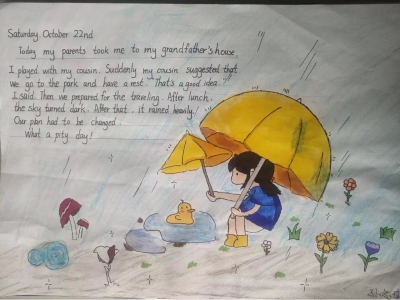 Saturday, October 22nd
Today my parents took me to my grandfather's house
I played with my cousin. Suddenly my cousin suggested that
we go to the park and have a rest. That's a good idea.
I said. Then we prepared for the traveling. After lunch,
the sky turned dark. After that, it rained heavily.
Our plan had to be changed.
What a pity day!